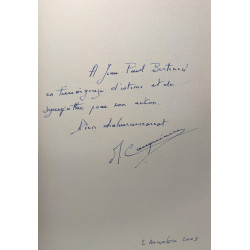 A Jean Paul
en témoignage d'estime et de
sympathie pour son action.
Bien chaleureusement
2 2003